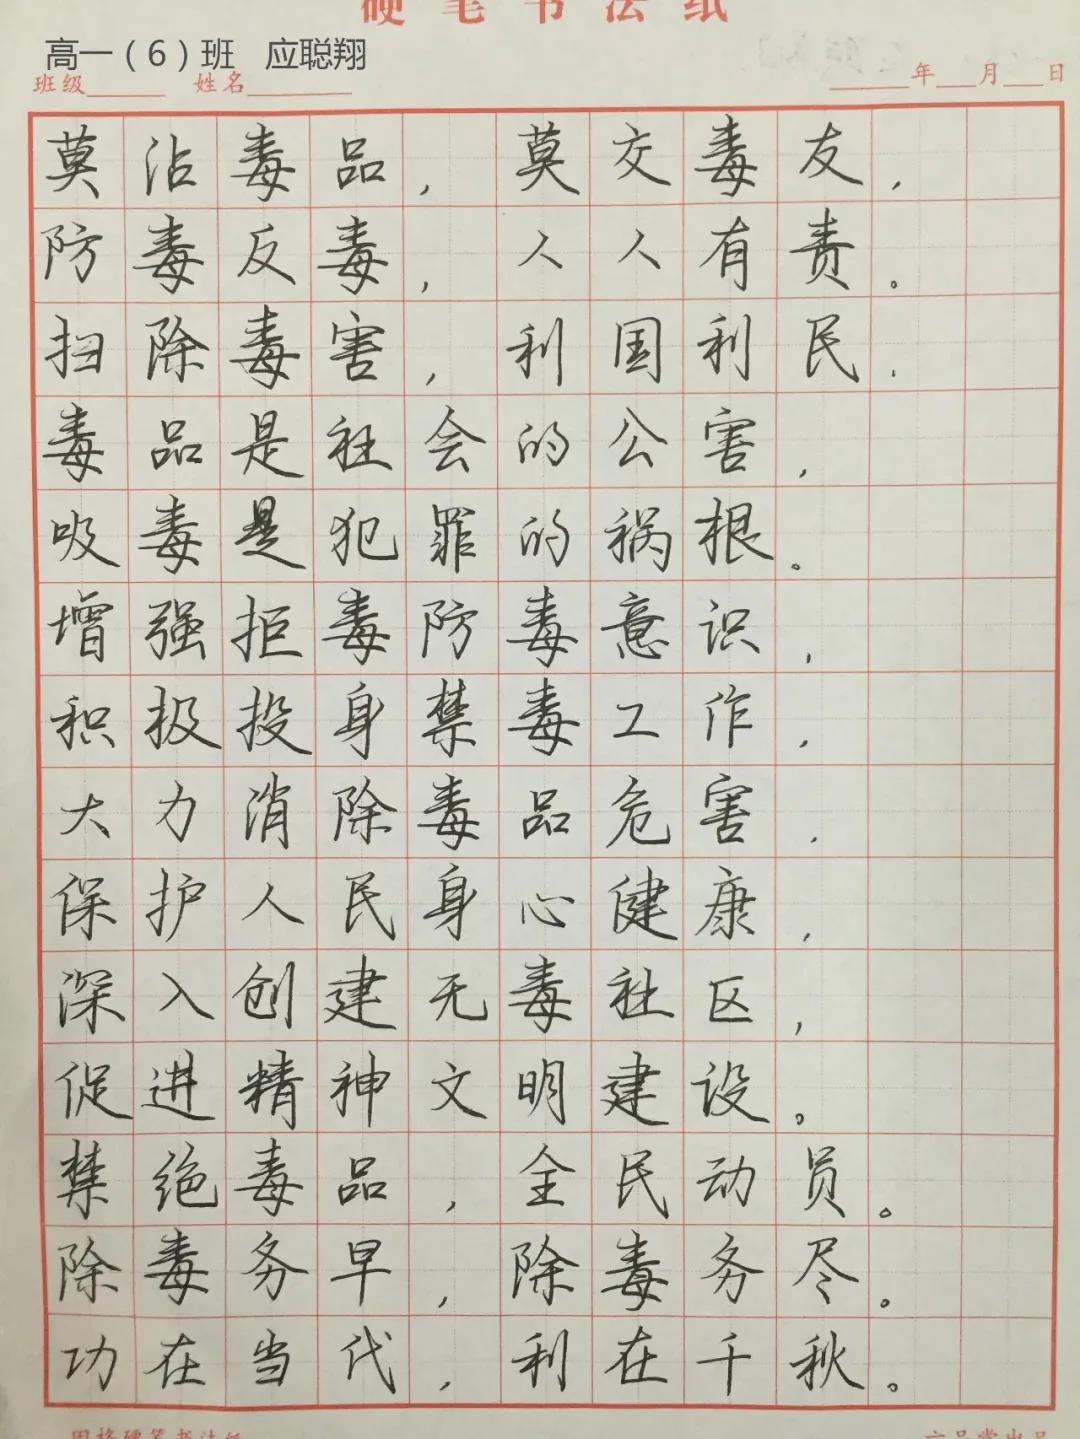 硬笔书法纸
高一（6）班 应聪翔
班级 姓名 年 月 日
莫沾毒品，莫交毒友，
防毒反毒，人人有责。
扫除毒害，利国利民，
毒品是社会的公害，
吸毒是犯罪的祸根。
增强拒毒防毒意识，
积极投身禁毒工作，
大力消除毒品危害，
保护人民身心健康，
深入创建无毒社区，
促进精神文明建设。
禁绝毒品，全民动员。
除毒务早，除毒务尽。
功在当代，利在千秋。